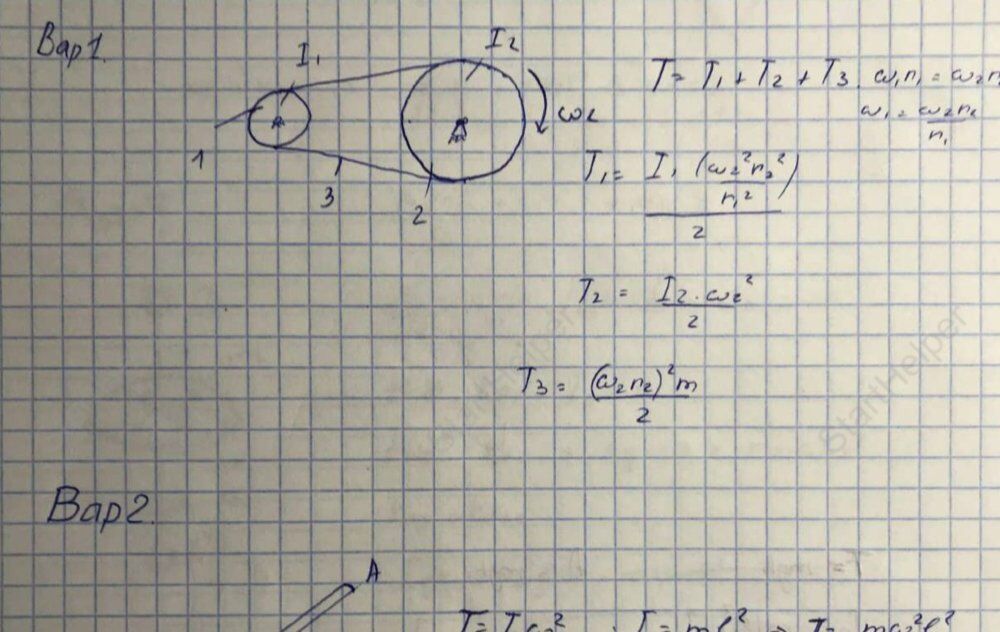 Вар1.
I₁
I₂
ω₂
1
3
2
T = T₁ + T₂ + T₃. ω₁r₁ = ω₂r
ω₁ = ω₂r₂/r₁
T₁ = I₁(ω₂²r₂²/r₁²)/2
T₂ = I₂·ω₂²/2
T₃ = (ω₂r₂)²m/2
StartHelper
StartHelper
Вар2.
A